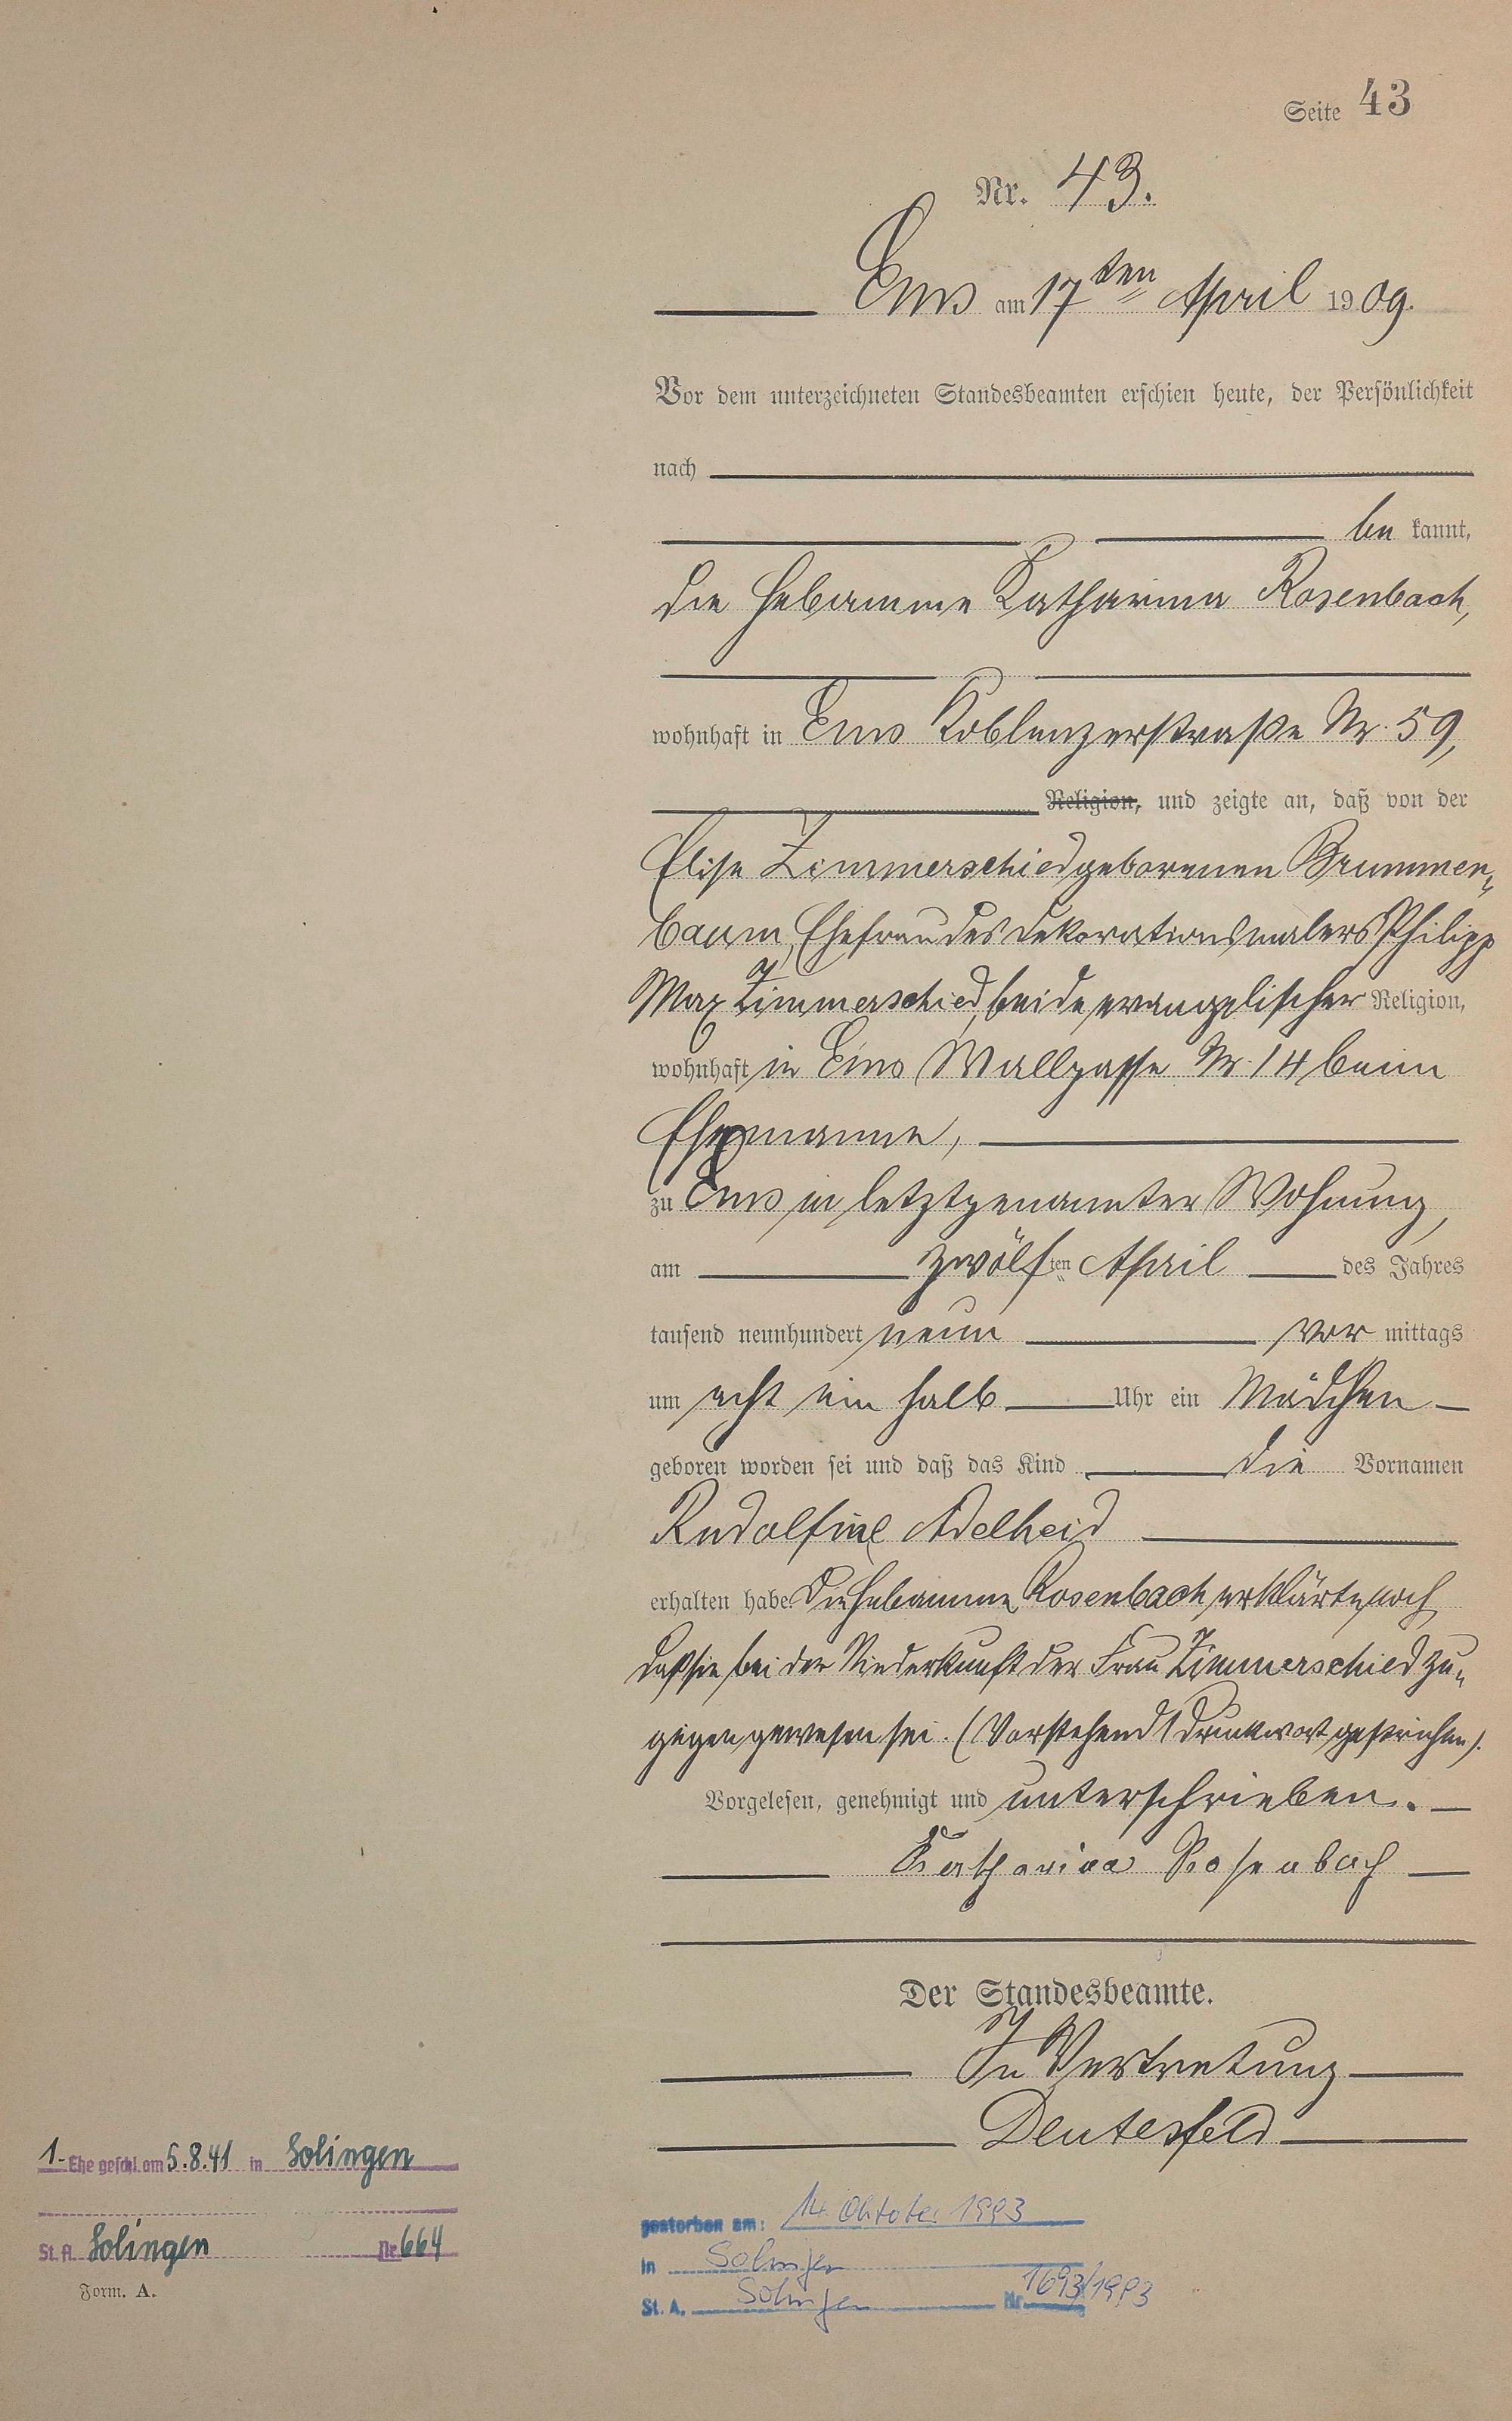 Seite 43
Nr. 43.
Ems am 17ten April 1909.
Vor dem unterzeichneten Standesbeamten erschien heute, der Persönlichkeit
nach
be kannt,
die Hebamme Katharina Rosenbach,
wohnhaft in Ems Koblenzerstraße Nr. 59,
Religion, und zeigte an, daß von der
Elise Zimmerschied geborenen Brummen-
baum, Ehefrau des Dekorationsmalers Philipp
Max Zimmerschied, beide evangelischer Religion,
wohnhaft in Ems Wallgasse Nr. 14 beim
Ehemanne,
zu Ems in letztgenannter Wohnung,
am zwölften April des Jahres
tausend neunhundert neun vor mittags
um acht ein halb Uhr ein Mädchen
geboren worden sei und daß das Kind die Vornamen
Rudolfine Adelheid
erhalten habe. Die Hebamme Rosenbach erklärte noch,
daß sie bei der Niederkunft der Frau Zimmerschied zu-
gegen gewesen sei. (Vorstehend 1 Druckwort gestrichen).
Vorgelesen, genehmigt und unterschrieben.
Katharina Rosenbach
Der Standesbeamte.
In Vertretung
Deutesfeld
1. Ehe geschl. am 5.8.41 in Solingen
St. A. Solingen Nr. 664
Form. A.
gestorben am: 14. Oktober 1993
in Solingen
St. A. Solingen Nr. 1693/1993